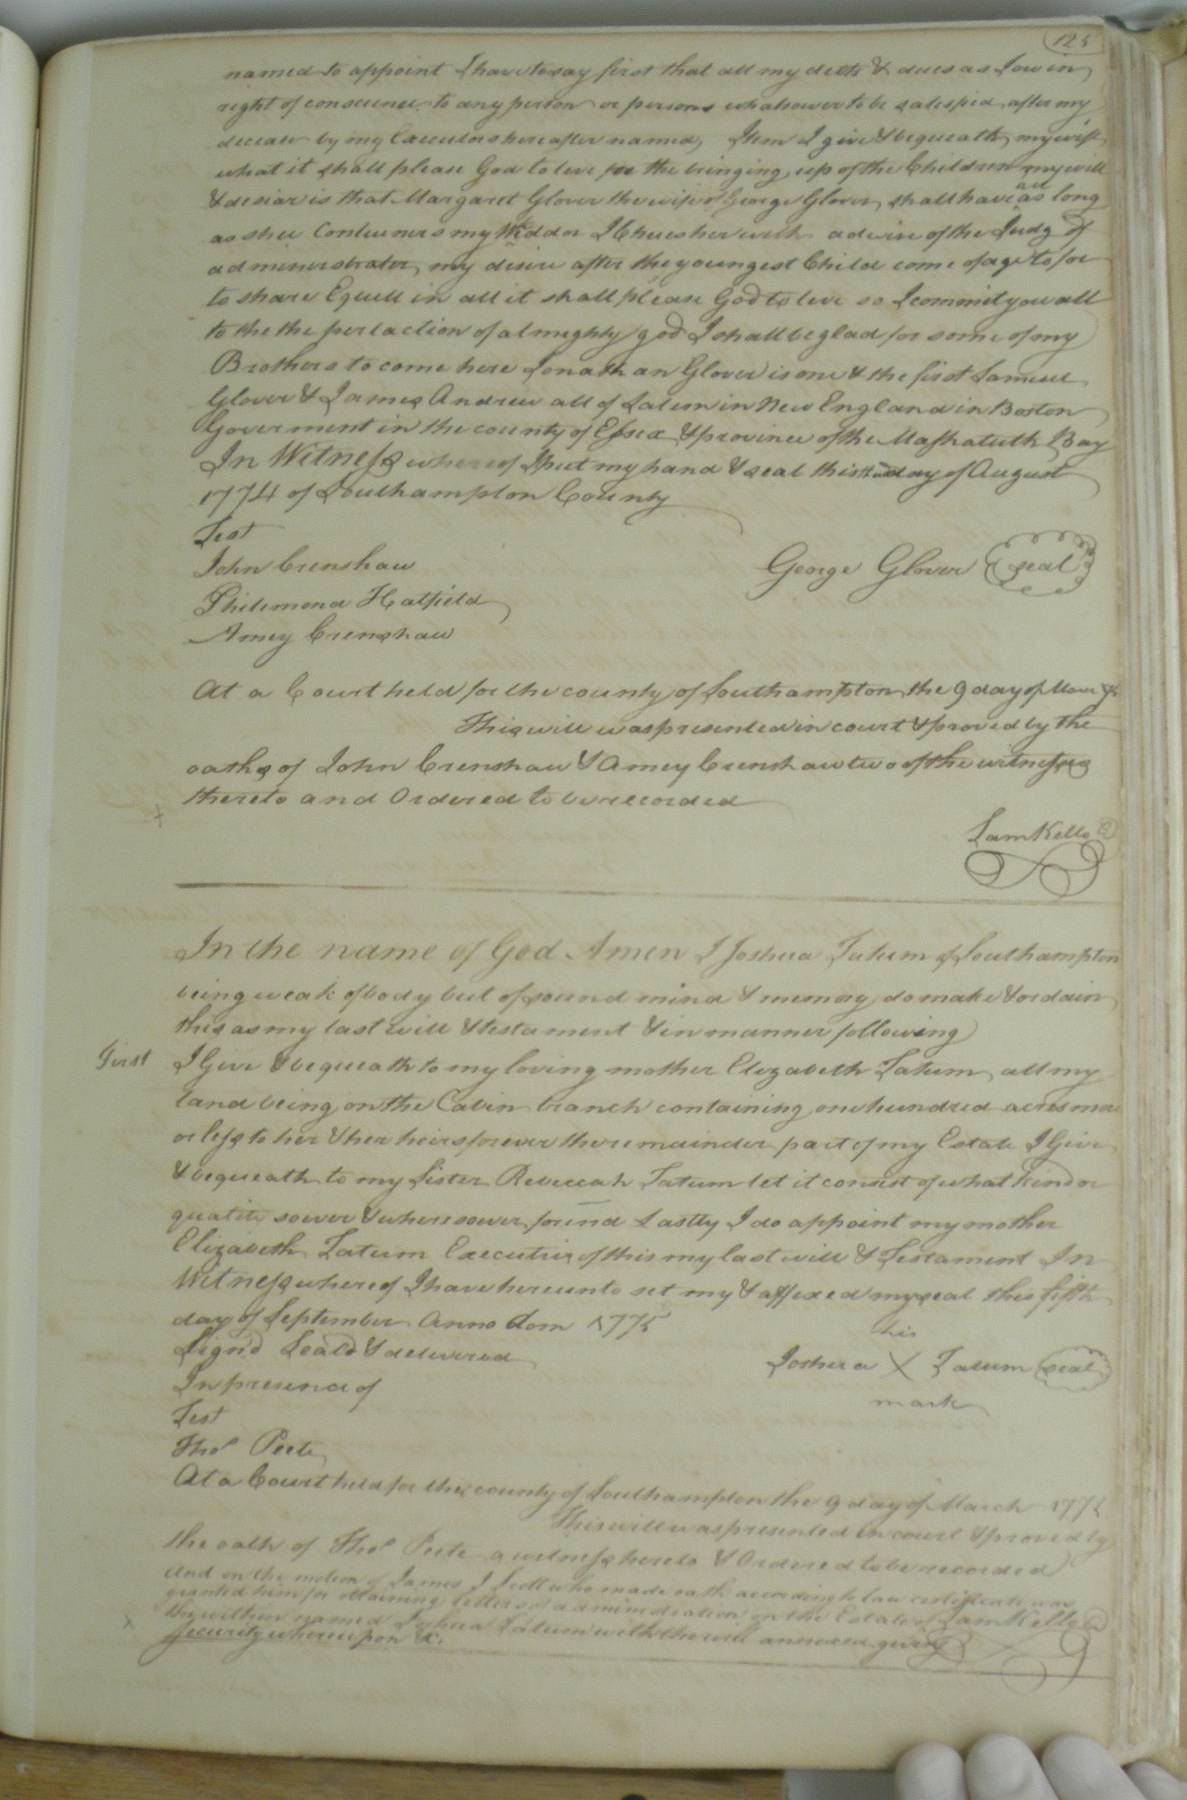 125
named to appoint I have to say first that all my debts & dues as I ow in
right of conscience to any person or persons whatsower to be satesfied after my
decease by my Executors hereafter named, Item I give & bequeath my wife
what it shall please God to leve for the bringing up of the Children my will
& desiar is that Margaret Glover the wife of George Glover shall have all as long
as shee Contineuers my Widdor I Chues her with advise of the Judg of
administrater my disire after the youngest Child come of age to for
to share Equell in all it shall please God to leve so I commit you all
to the the pertaction of almighty god I shall be glad for some of my
Brothers to come here Jonathan Glover is one & the first Samuel
Glover & James Andrew all of Salum in New England in Boston
Goverment in the county of Essex & province of the Mashatuth Bay
In Witness whereof I put my hand & seal this day of August
1774 of Southampton County
Test
John Crenshaw
George Glover seal
Philemond Hatfield
Amey Crenshaw
At a Court held for the county of Southampton the 9 day of
This will was presented in court & proved by the
oaths of John Crenshaw & Amey Crenshaw two of the witnesses
thereto and Ordered to be recorded
Sam Kello
In the name of God Amen I Joshua Tatum of Southampton
being weak of body but of sound mind & memory do make & ordain
this as my last will & testament & in manner following
First I Give & bequeath to my loving mother Elizabeth Tatum all my
land being on the Cabin branch containing one hundred acres more
or less to her & her heirs forever the remainder part of my Estate I Give
& bequeath to my Sister Rebeccah Tatum let it consist of what kind or
quality soever & wheresoever found Lastly I do appoint my mother
Elizabeth Tatum Executrix of this my last will & Testament In
Witness whereof I have hereunto set my & affixed my seal this fifth
day of September Anno dom 1775
his
Sign'd Seal'd & delivered
Joshua X Tatum seal
In presence of
mark
Test
Tho.s Peete
At a Court held for the county of Southampton the 9 day of March
This will was presented in court & proved by
the oath of Tho.s Peete a witness hereto & Ordered to be recorded
And on the motion of James J Scott who made oath according to law certificate was
granted him for obtaining letters of administration on the Estate of
the within named Joshua Tatum with the will annexed giving
Sam Kello
Security whereupon &c.